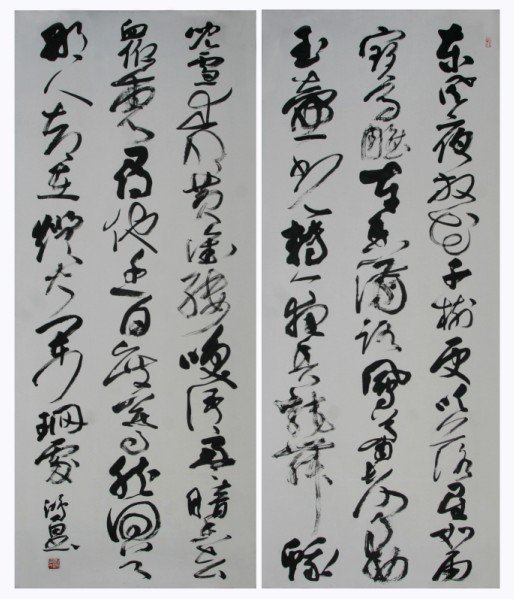 东风夜放花千树更吹落星如雨
寶馬雕车香满路鳳箫声动
玉壶光轉一夜魚龍舞蛾
兒雪柳黄金缕笑语盈盈暗香去
眾里尋他千百度蓦然回首
那人却在燈火阑珊處